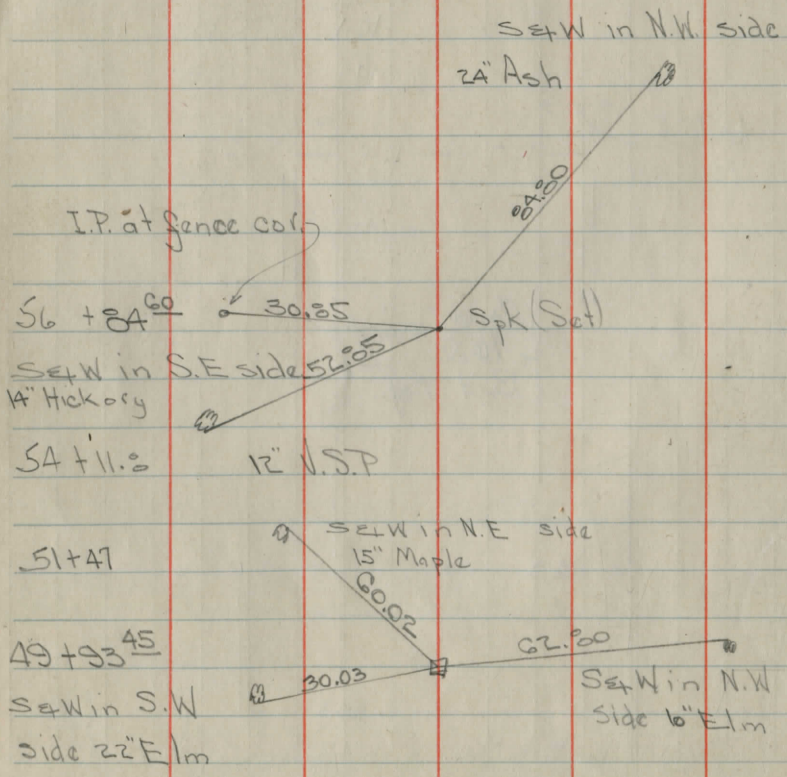 S&W in N.W. side
24" Ash
84.80
I.P. at fence cor.
56 +84 60
30.85
Spk (Set)
S&W in S.E side 52.85
14" Hickory
54 +11.8
12" V.S.P
S&W in N.E side
15" Maple
51+47
60.02
49 +93 45
62.80
30.03
S&W in S.W
side 22" Elm
S&W in N.W
Side 6" Elm